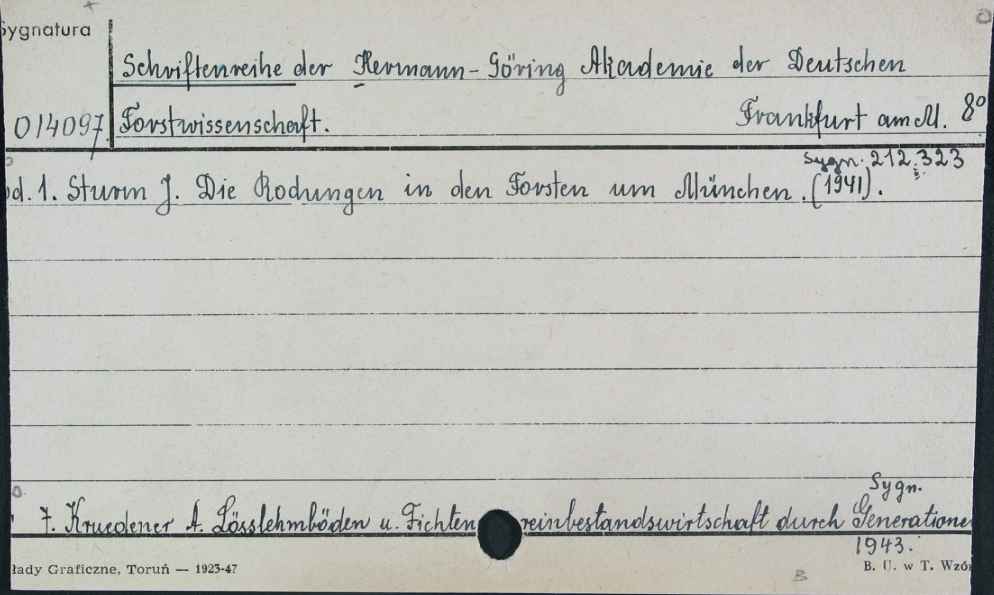 Sygnatura
Schriftenreihe der Hermann-Göring Akademie der Deutschen
014097 Forstwissenschaft. Frankfurt am M. 8°
Sygn. 212.323
bd. 1. Sturm J. Die Rodungen in den Forsten um München. (1941).
Sygn.
7. Kruedener A. Lösslehmböden u. Fichten reinbestandswirtschaft durch Generatione
1943.
łady Graficzne, Toruń — 1923-47 B. U. w T. Wzó
B